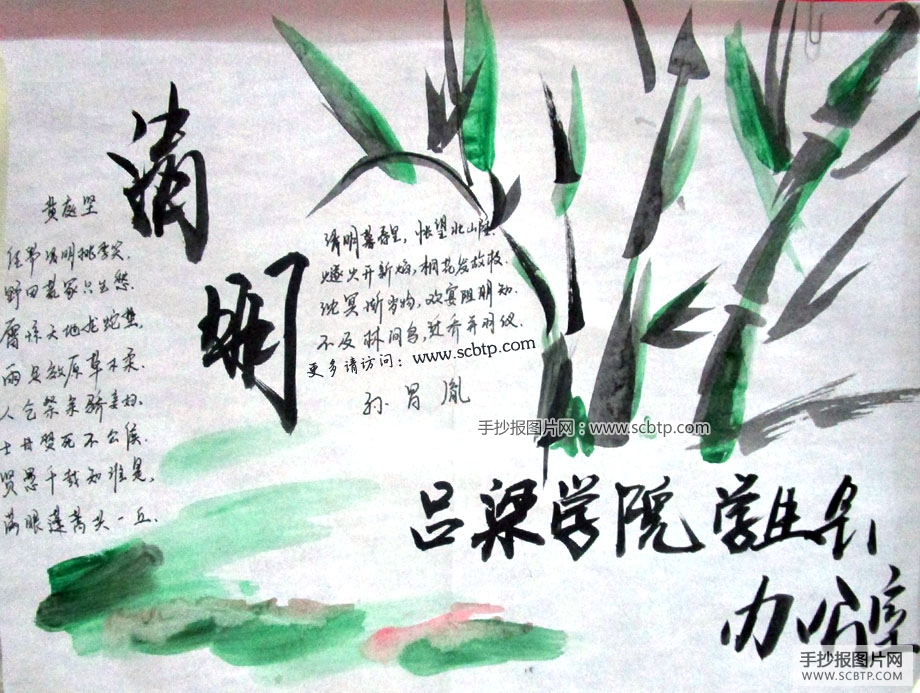 清明
黄庭坚
佳节清明桃李笑,
野田荒冢只生愁.
雷惊天地龙蛇蛰,
雨足郊原草木柔.
人乞祭余骄妾妇,
士甘焚死不公侯.
贤愚千载知谁是,
满眼蓬蒿共一丘.
清明暮春里,怅望北山陲.
燧火开新焰,桐花发故枝.
沈冥惭岁物,欢宴阻朋知.
不及林间鸟,迁乔并羽仪.
更多请访问:www.scbtp.com
孙昌胤
手抄报图片网:www.scbtp.com
吕梁学院学生会
办公室
手抄报图片网
WWW.SCBTP.COM